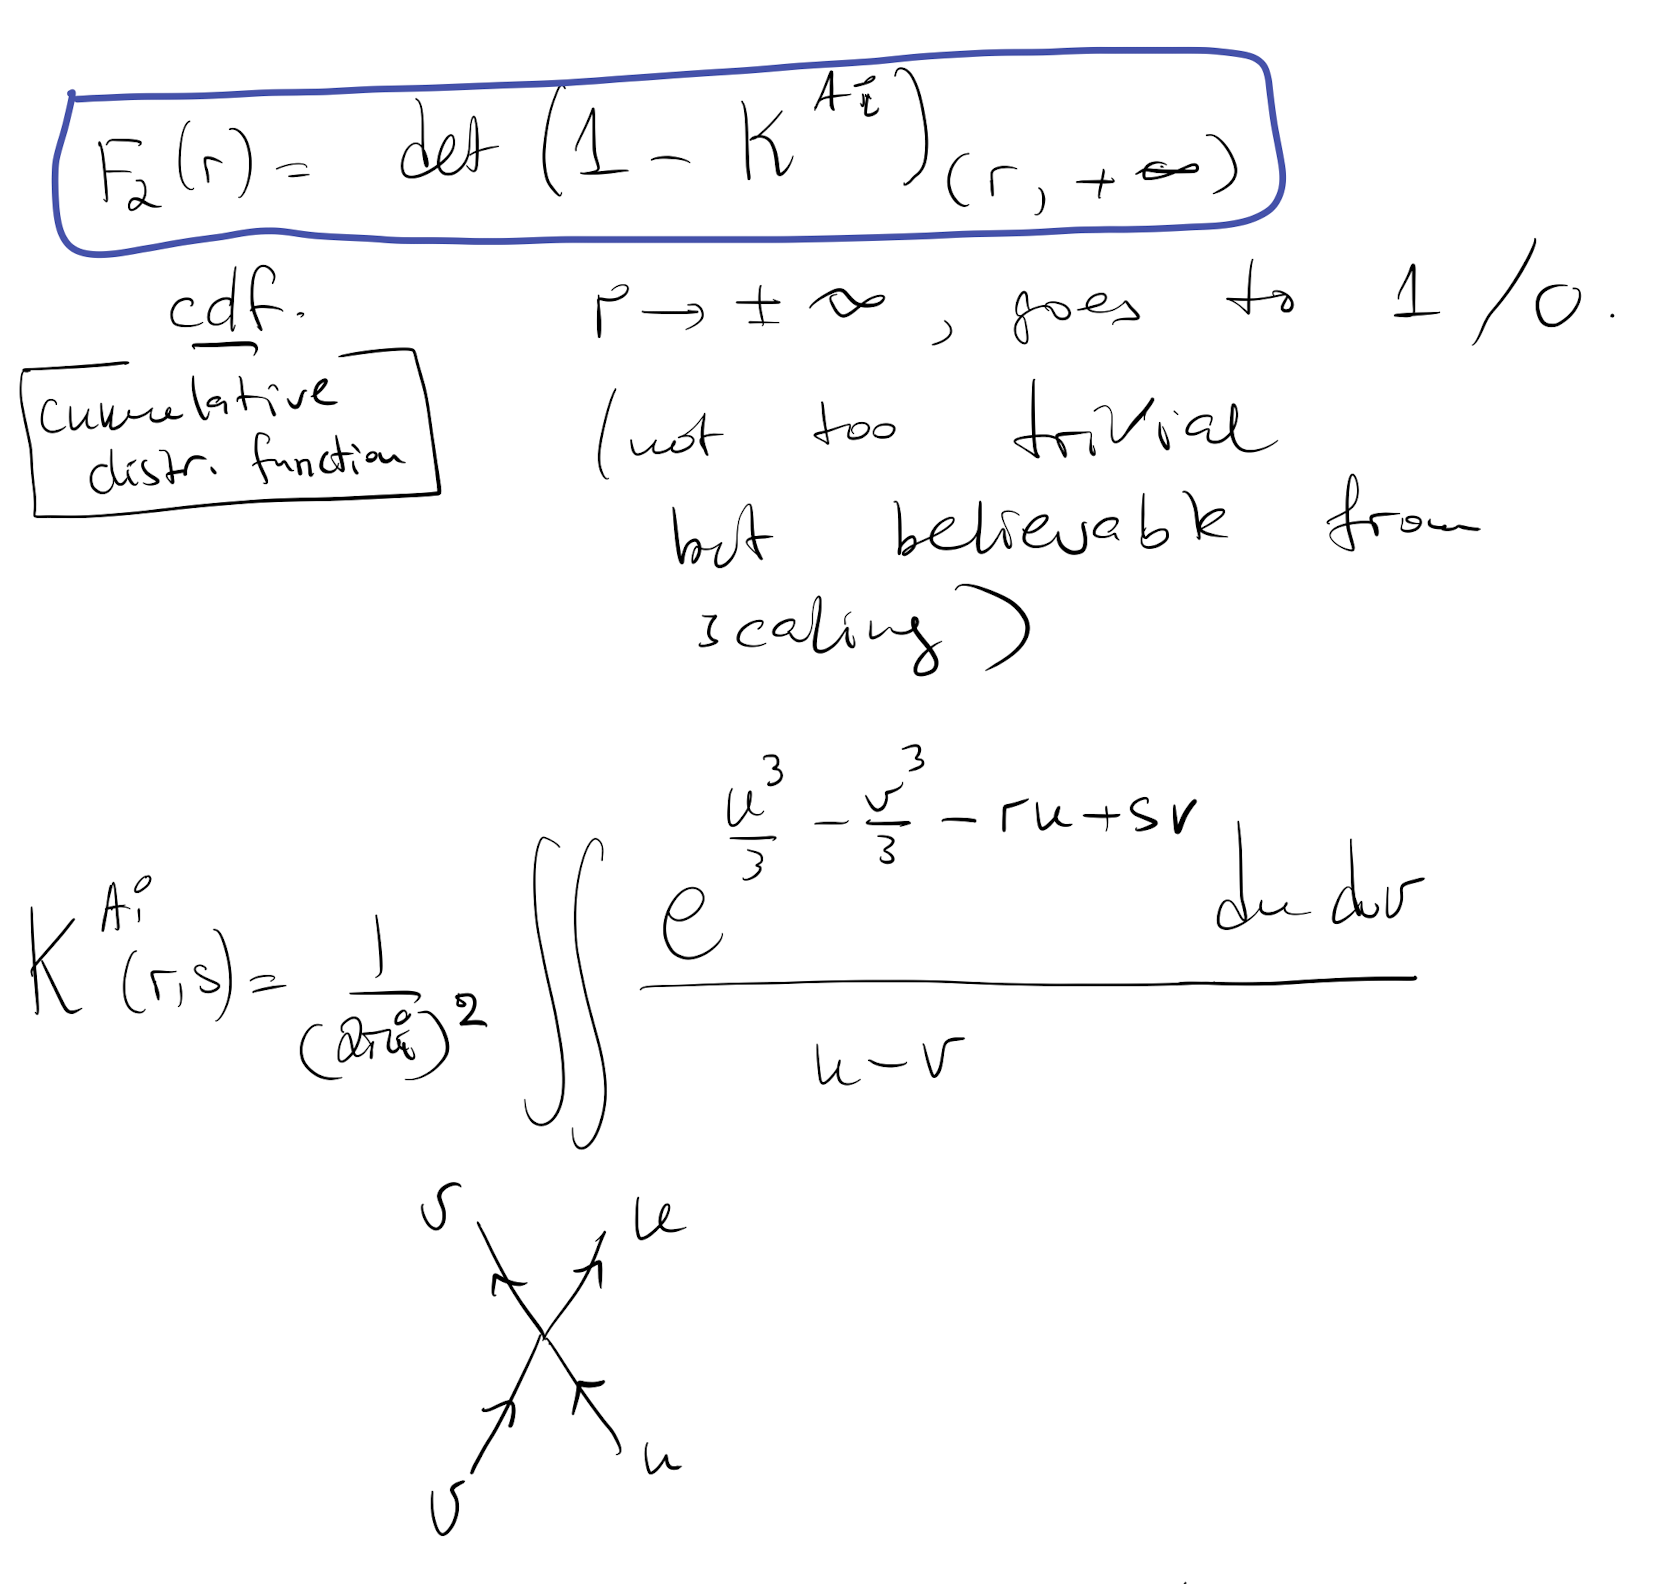 F₂(r) = det (1 - K^{Ai})_{(r, +∞)}
cdf.
cumulative
distr. function
r → ± ∞, goes to 1/0.
(not too trivial
but believable from
scaling)
K^{Ai}(r,s) = \frac{1}{(2πi)^2} ∬ \frac{e^{\frac{u^3}{3} - \frac{v^3}{3} - ru + sv} du dv}{u - v}
v u
v u